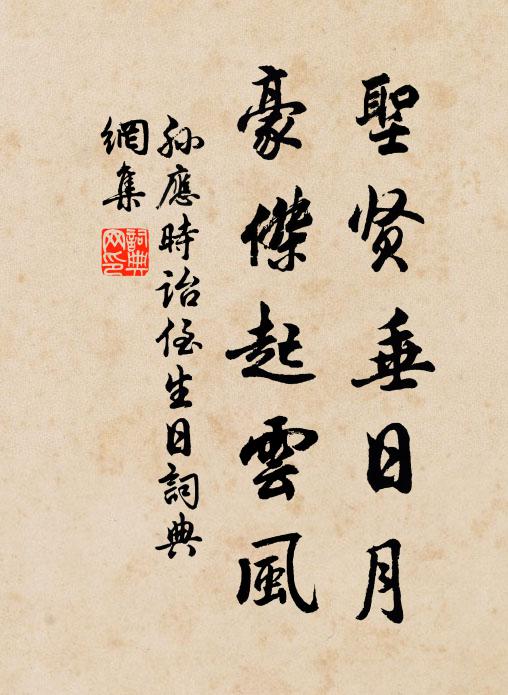 聖贤垂日月
豪傑起雲風
孙應時詒侄生日詞典
網集
詞典
网印